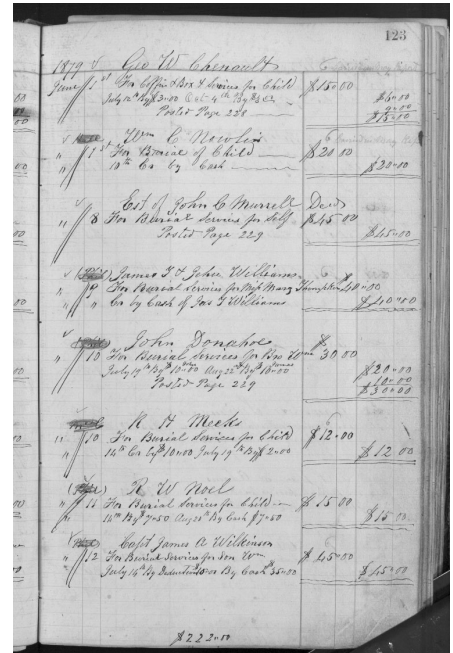 123
1879 Geo W Chenault
June 1st For Coffin & Box & Services for Child $15.00
July 12th By $3.00 Oct 4th By $3
$6.00
9.00
Posted Page 228 $15.00
Wm C Nowlin
" 1st For Burial of Child $20.00
10th Cr by Cash $20.00
Est of John C Murrell Decd
" 8 For Burial Services for Self $45.00
Posted Page 229 $45.00
James T & John Williams
" 9 For Burial Services for Miss Mary Thompson 40.00
" " Cr by Cash of Jas T Williams $40.00
John Donahoe
" 10 For Burial Services for Bro Wm $30.00
July 19th By $10.00 Aug 22d By $10.00
$20.00
10.00
Posted Page 229 $30.00
R H Meeks
" 10 For Burial Services for Child $12.00
14th Cr By $10.00 July 19th By $2.00 $12.00
R W Noel
" 11 For Burial Services for Child $15.00
14th By $7.50 Aug 28th By Cash $7.50 $15.00
Capt James A Wilkinson
" 12 For Burial Services for Son Wm $45.00
July 14th By Deduction 10.00 By Cash 35.00 $45.00
$222.00